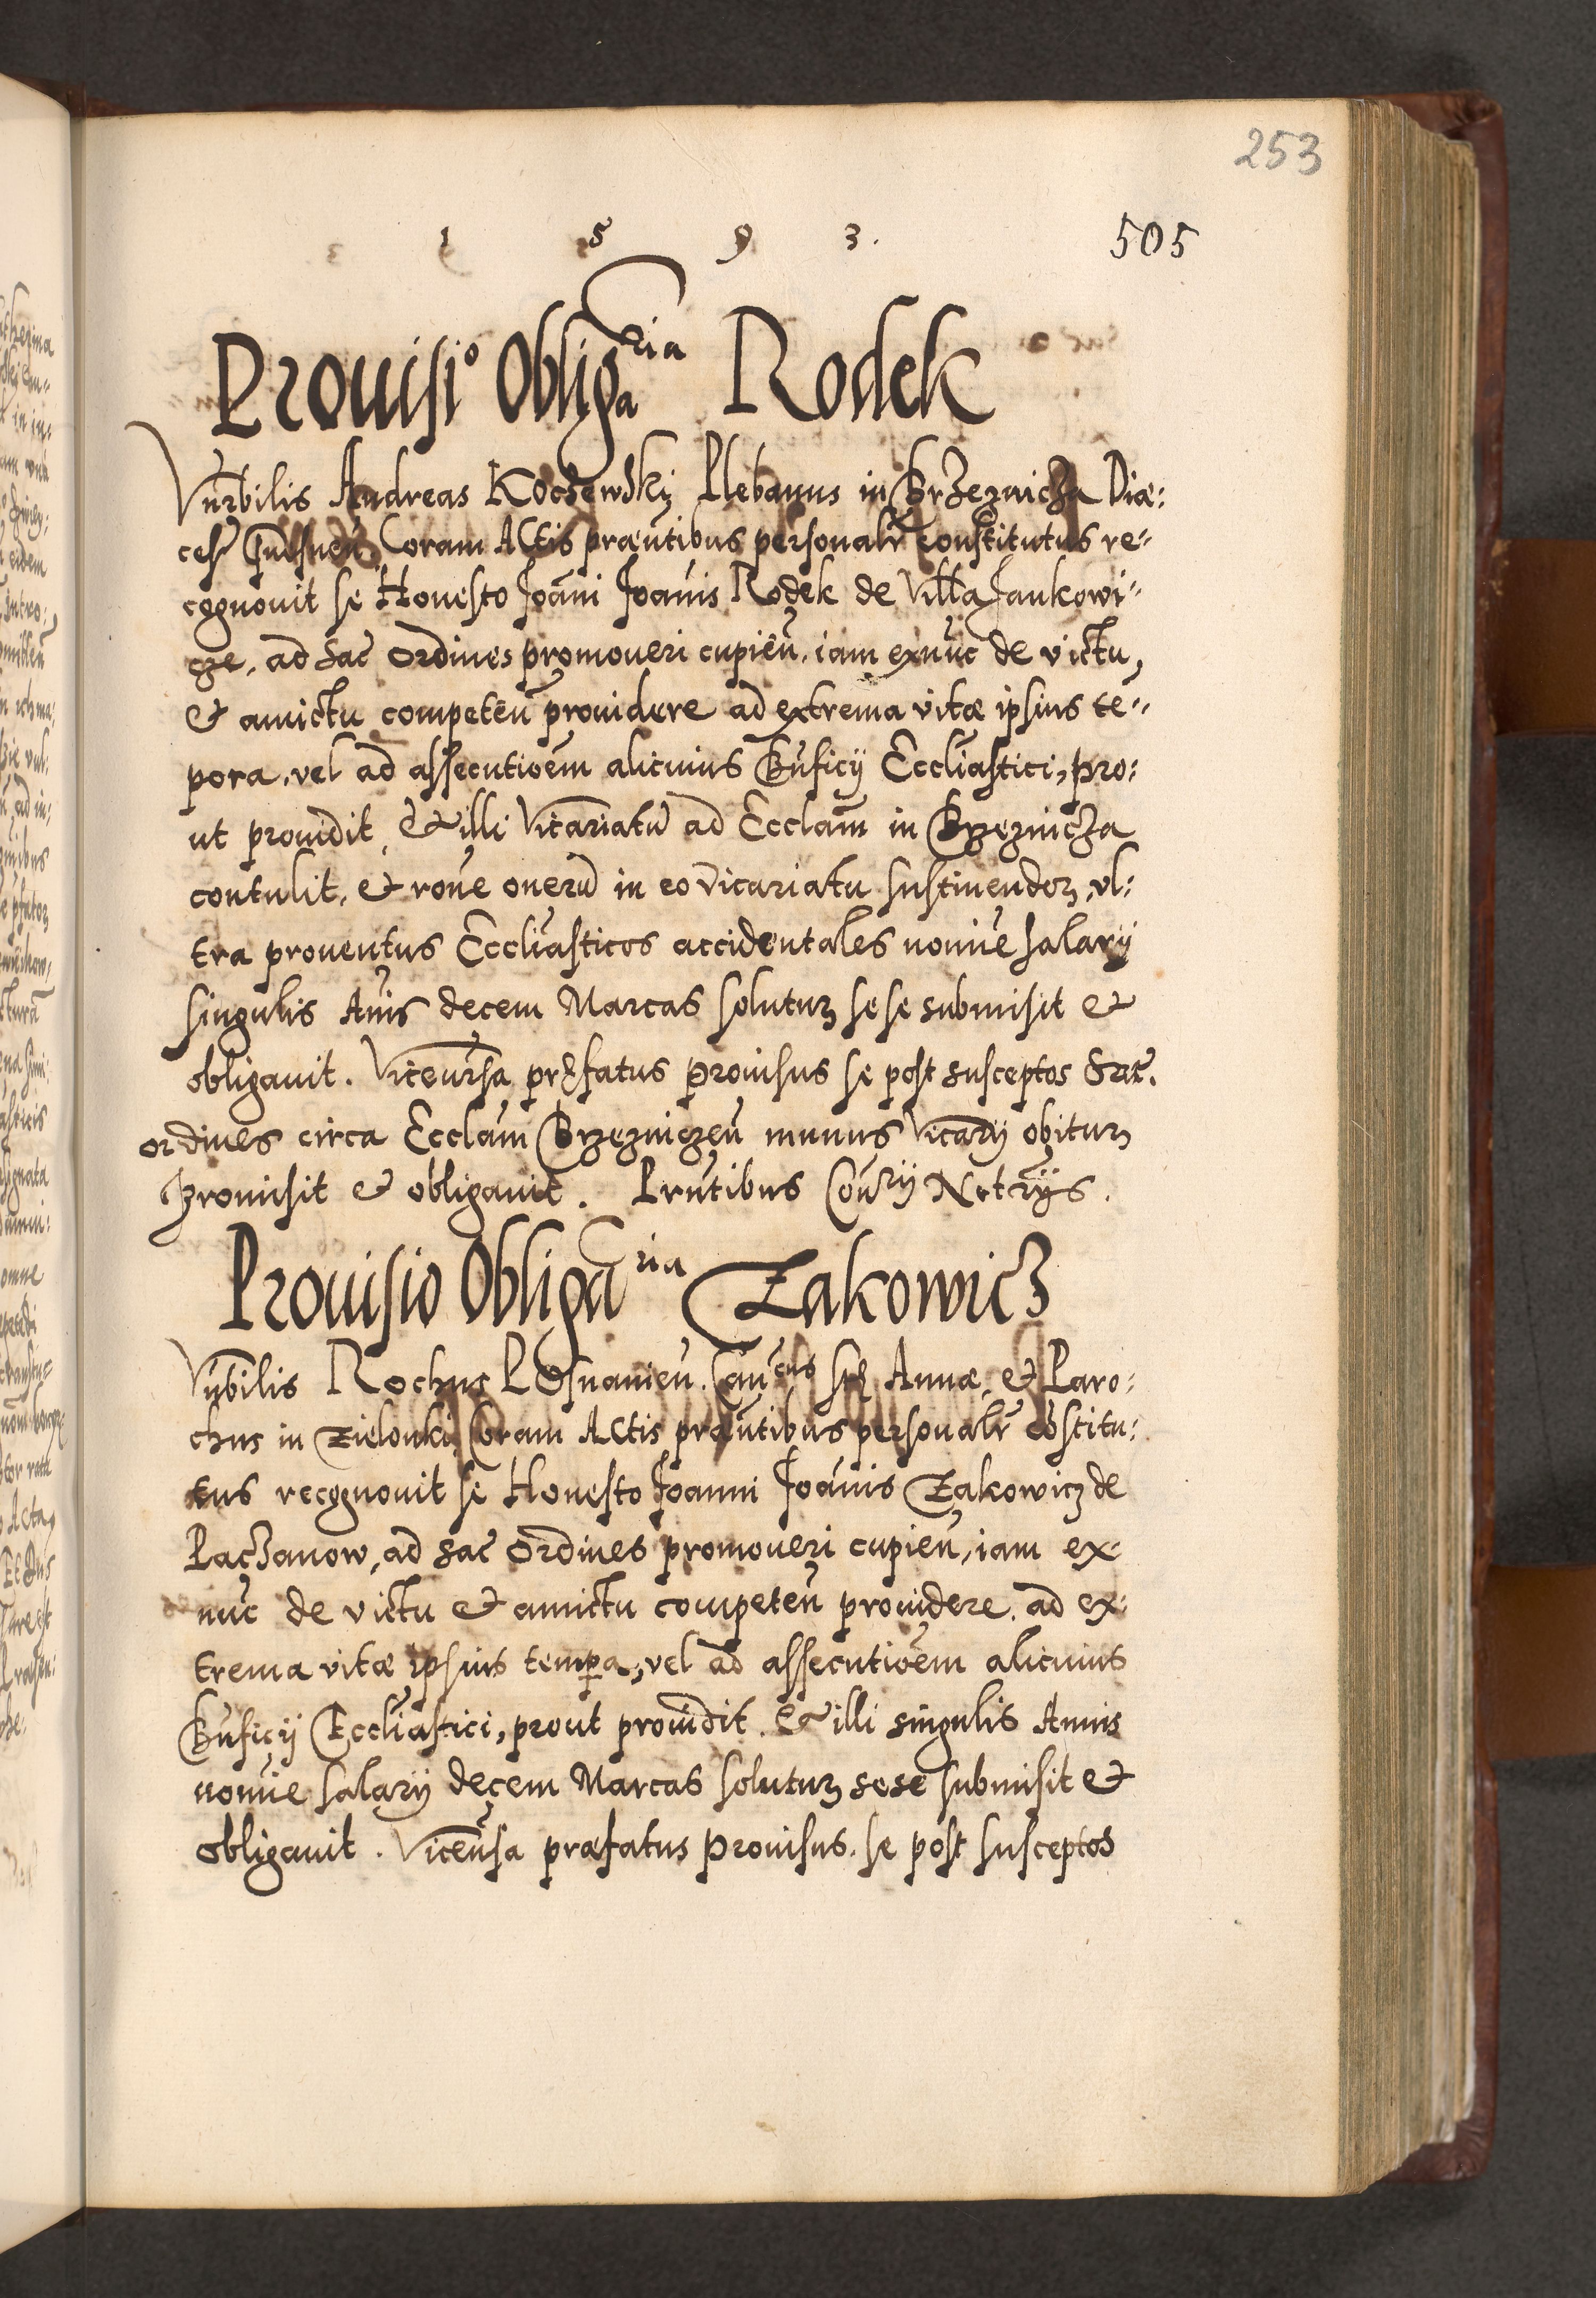 253
1 5 9 3.
505
Prouisi° Obligaria Rodek
Vnrbilis Andreas Koczewskÿ Plebanus in Brzeznicza Diæ:
ces̃ Gnesneñ Coram Actis præntibus personalr̃ constitutus re-
cognouit se Honesto Joãni Joanis Rodek de Villa Jankowi-
cze, ad Sac̃ Ordines promoueri cupieñ, iam exnũc de victu,
& amictu competeñ prouidere ad extrema vitæ ipsius te-
pora, vel ad assecutioẽm alicuius Bñficÿ Eccliãstici, pro:
ut prouidit, & illi Vicariatũ ad Ecclãm in Brzeznicza
contulit, & rõne onerũ in eo Vicariatu sustinendoꝝ, vl:
tra prouentus Eccliãsticos accidentales noĩne salarÿ
singulis Anĩs decem Marcas soluturꝫ sese submisit &
obligauit. Viceuersa præfatus Prouisus se post susceptos Sac̃.
ordines circa Ecclãm Brzezniczeñ munus Vicarÿ obiturꝫ
promisit & obligauit. Prñtibus Conrÿ Notrÿs.
Prouisio Obligaria Zakowicz
Vnbilis Rochus Posnanieñ. Canẽus Stæ Annæ, & Paro:
chus in Zielonki, Coram Actis præntibus personalr̃ cõstitu:
tus recognouit se Honesto Joanni Joãnis Zakowicz de
Paczanow, ad sac̃ Ordines promoueri cupieñ, iam ex-
nũc de victu & amictu competeñ prouidere, ad ex-
trema vitæ ipsius tempa, vel ad assecutioẽm alicuius
Bñficÿ Eccliãstici, prout prouidit. & illi singulis Annis
noĩne salarÿ decem Marcas soluturꝫ sese submisit &
obligauit. Viceũsa præfatus Prouisus, se post susceptos